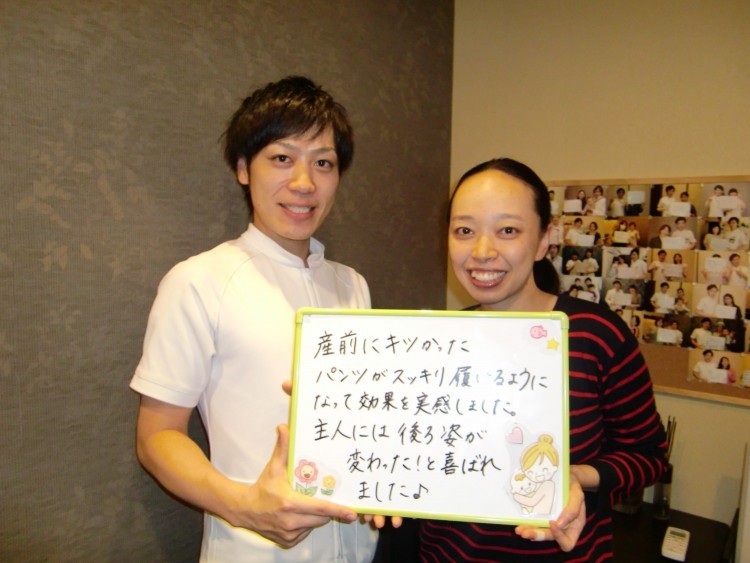 産前にキツかった
パンツがスッキリ履いるように
なって効果を実感しました。
主人には後ろ姿が
変わった!と喜ばれ
ました♪